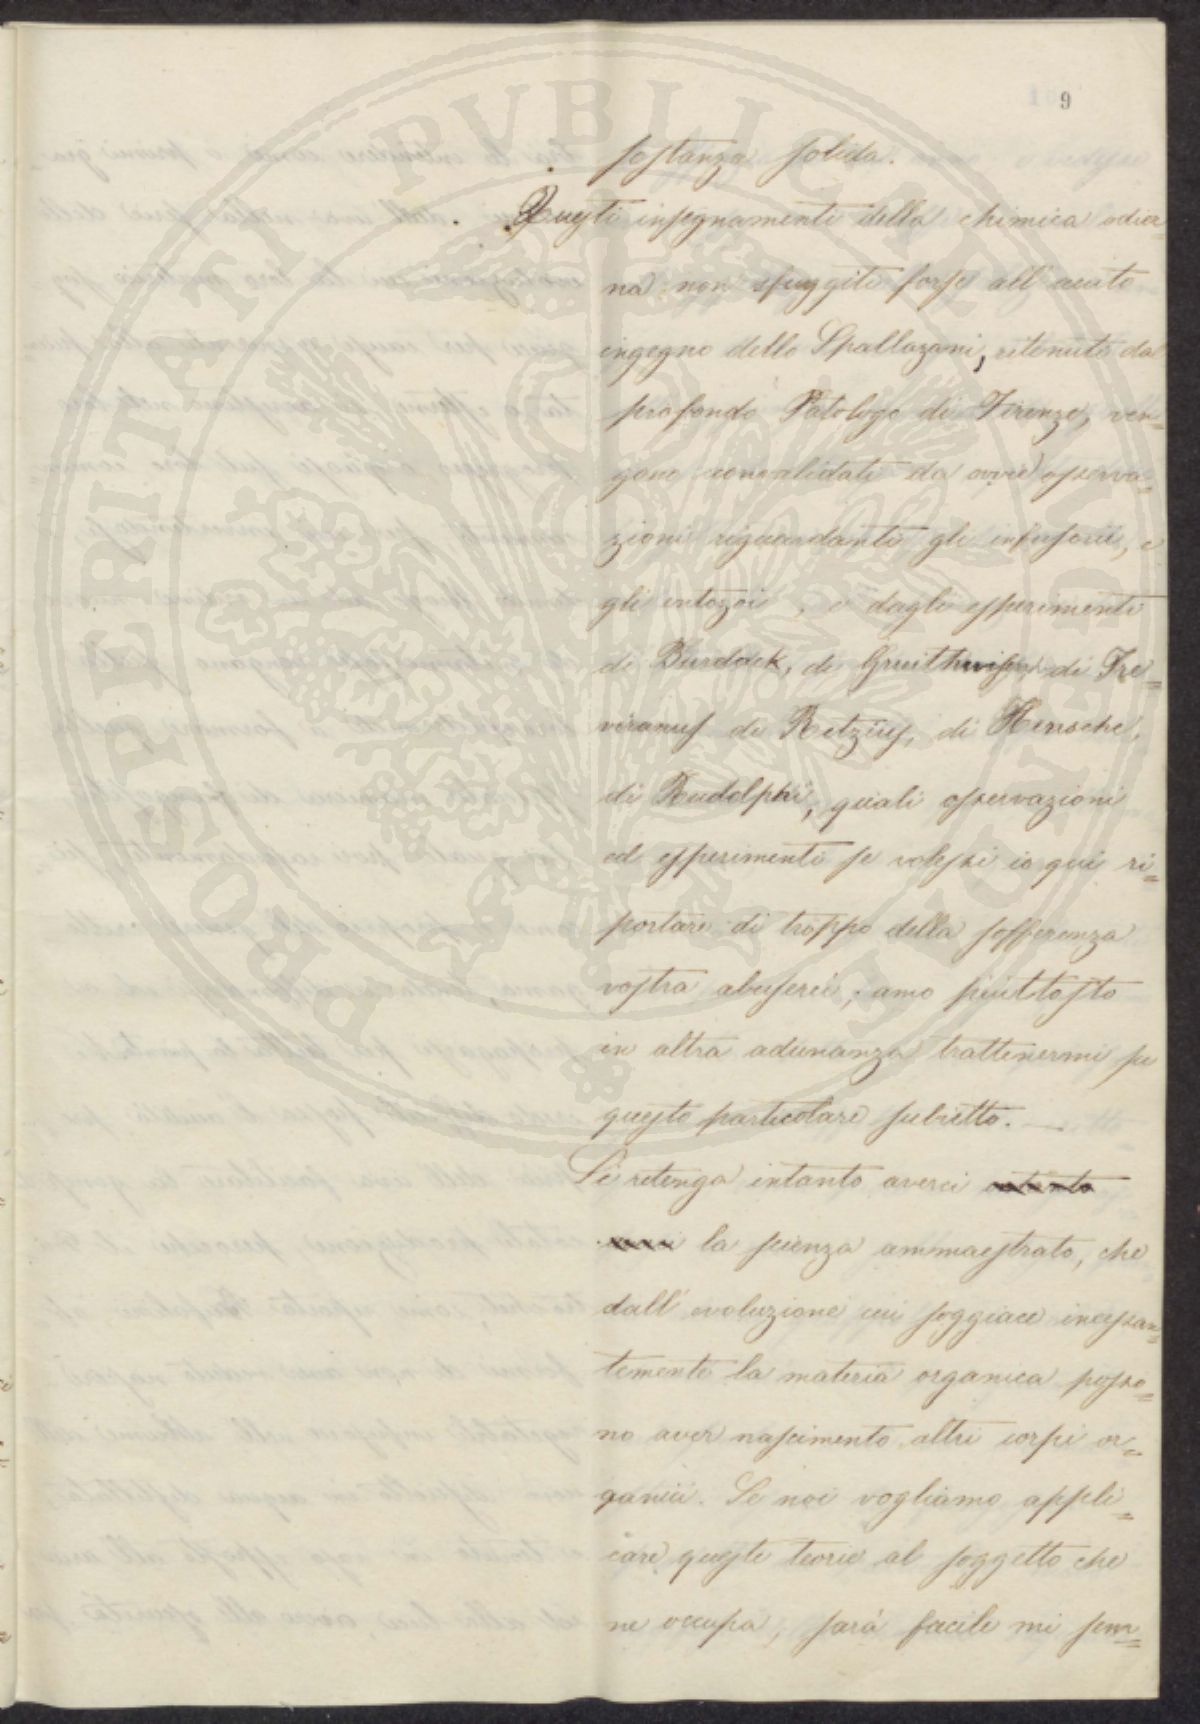 9
sostanza solida.
Questi insegnamenti della chimica odier=
na non sfuggiti forse all'acuto
ingegno dello Spallazani, ritenuto dal
profondo Patologo di Firenze, ven=
gono convalidati da ovvie osserva=
zioni riguardanti gli infusorii, e
gli entozoi, e dagli esperimenti
di Burdack, di Gruithuisen di Tre=
viranus di Retzius, di Hensche,
di Rudolphi, quali osservazioni
ed esperimenti se volessi io qui ri=
portare di troppo della sofferenza
vostra abuserei; amo piuttosto
in altra adunanza trattenermi su
questo particolare subietto.
Si ritenga intanto averci
la scienza ammaestrato, che
dall'evoluzione cui soggiace incessan=
temente la materia organica posso=
no aver nascimento altri corpi or=
ganici. Se noi vogliamo appli=
care queste teorie al soggetto che
ne occupa, sarà facile mi sem=
PROSPERITATI PVBLICAE AVGENDAE